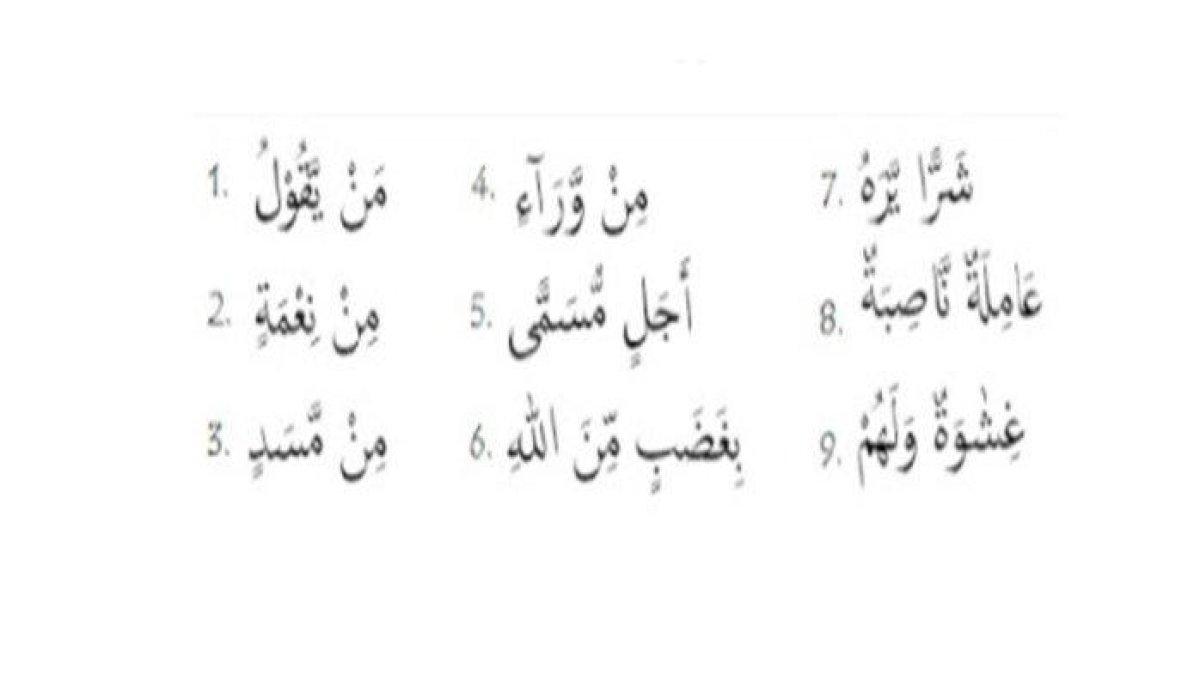 1. مَنْ يَّقُوْلُ
4. مِنْ وَّرَآءِ
7. شَرًّا يَّرَهُ
2. مِنْ نِعْمَةٍ
5. أَجَلٍ مُّسَمًّى
8. عَامِلَةٌ نَّاصِبَةٌ
3. مِنْ مَّسَدٍ
6. بِغَضَبٍ مِّنَ اللّٰهِ
9. غِشٰوَةٌ وَلَهُمْ